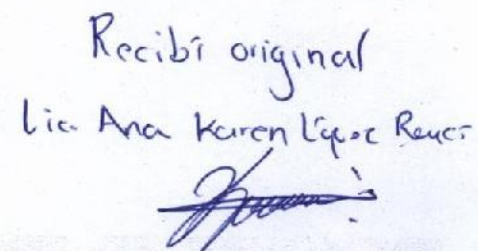 Recibí original
Lic. Ana Karen López Reyes